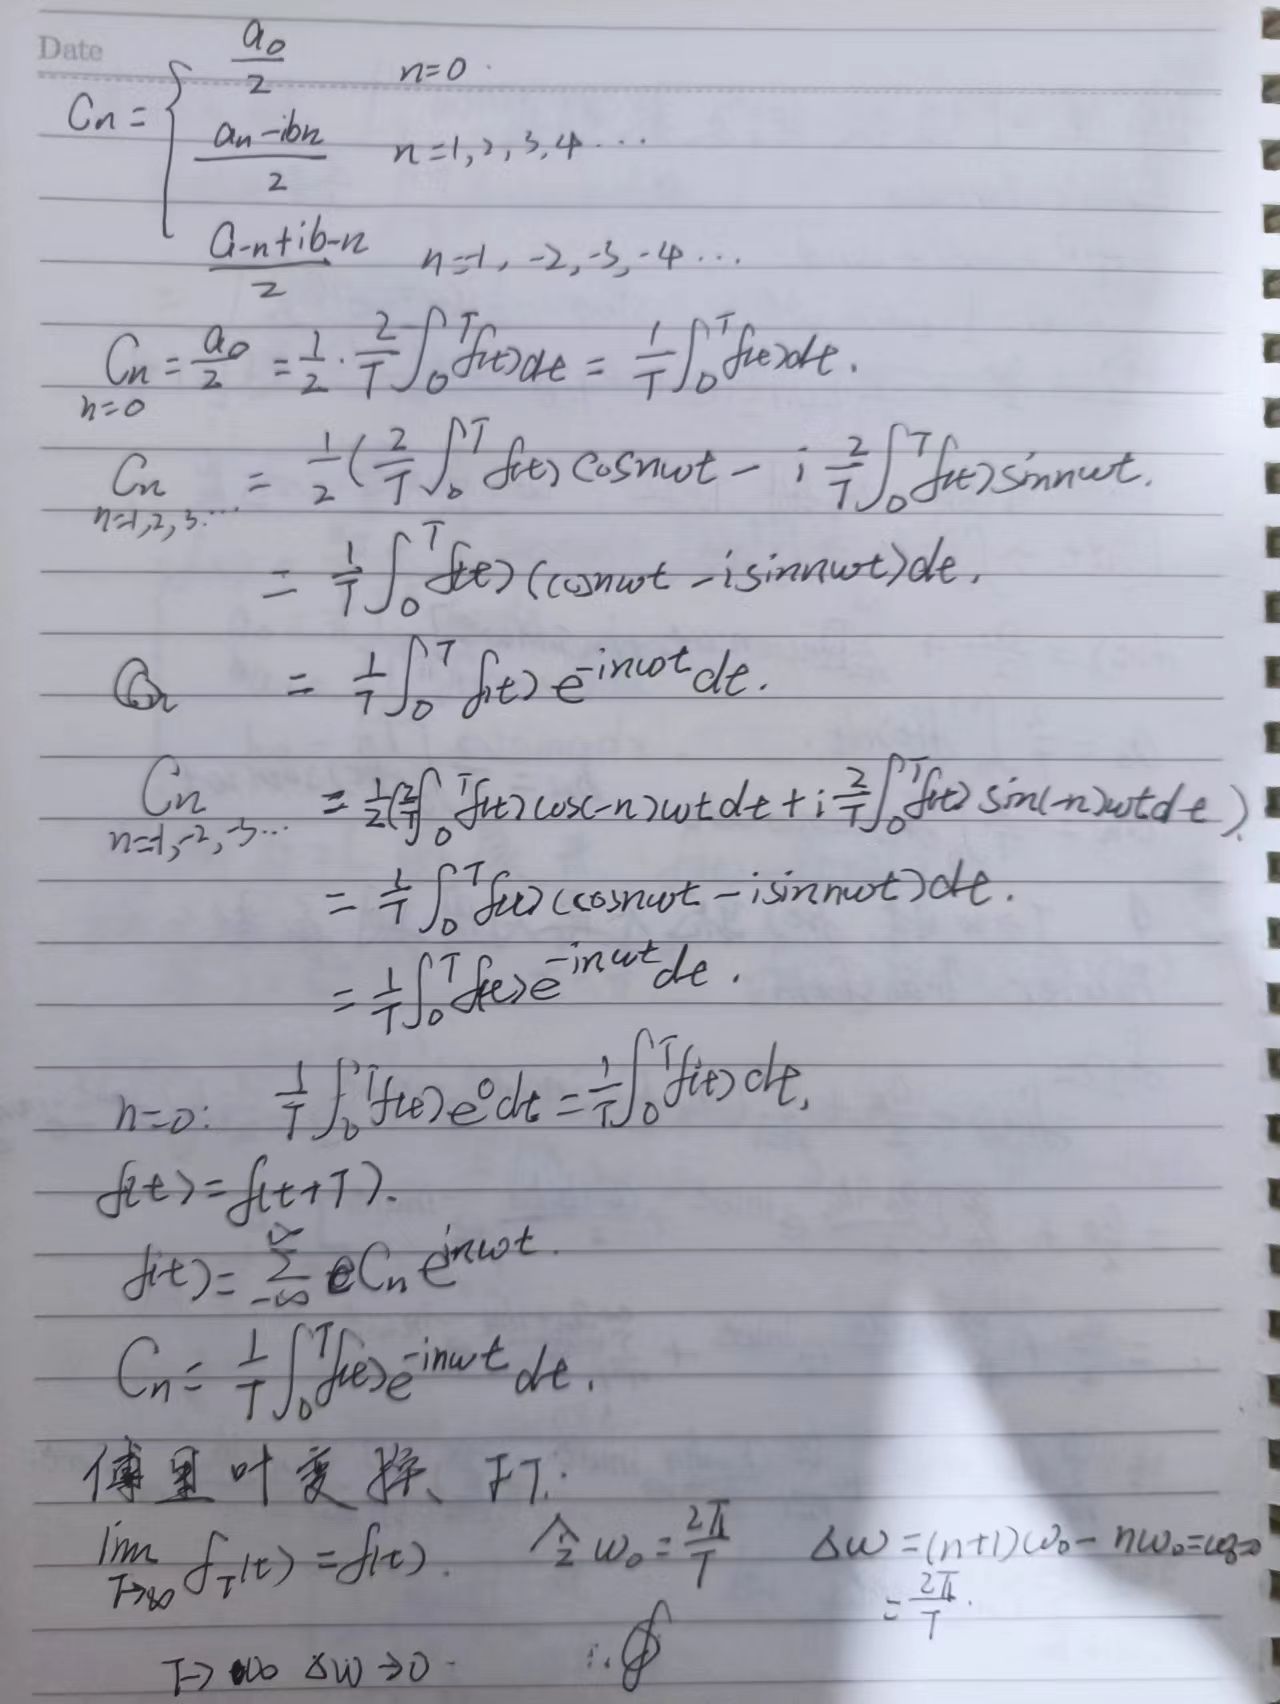 Date
Cn = { a0/2 n=0.
(an-ibn)/2 n=1,2,3,4...
(a-n+ib-n)/2 n=-1, -2,-3,-4...
Cn = a0/2 = 1/2 · 2/T ∫0^T f(t)dt = 1/T ∫0^T f(t)dt.
n=0
Cn = 1/2 ( 2/T ∫0^T f(t) cosnωt - i 2/T ∫0^T f(t) sinnωt.
n=1,2,3...
= 1/T ∫0^T f(t) (cosnωt - isinnωt)dt.
= 1/T ∫0^T f(t) e^-inωt dt.
Cn = 1/2 ( 2/T ∫0^T f(t) cos(-n)ωt dt + i 2/T ∫0^T f(t) sin(-n)ωt dt ).
n=-1,-2,-3...
= 1/T ∫0^T f(t) (cosnωt - isinnωt)dt.
= 1/T ∫0^T f(t) e^-inωt dt.
n=0: 1/T ∫0^T f(t) e^0 dt = 1/T ∫0^T f(t) dt,
f(t) = f(t+T).
f(t) = ∑-∞^∞ Cn e^inωt.
Cn = 1/T ∫0^T f(t) e^-inωt dt.
傅里叶变换、FT:
lim T→∞ fT(t) = f(t). 令 ω0 = 2π/T Δω = (n+1)ω0 - nω0 = ω0
= 2π/T.
T→∞ Δω→0. ∴